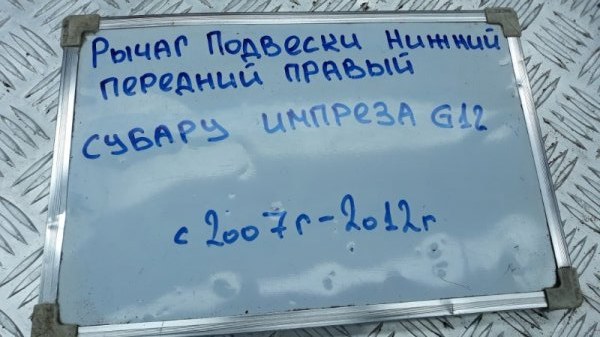 Рычаг Подвески нижний
передний правый
Субару Импреза G12
с 2007г-2012г